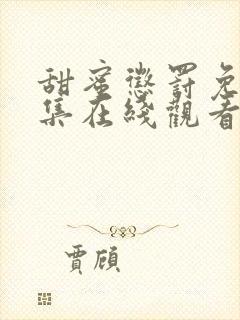 甜蜜懲罰免
集在綫觀看
賈頎